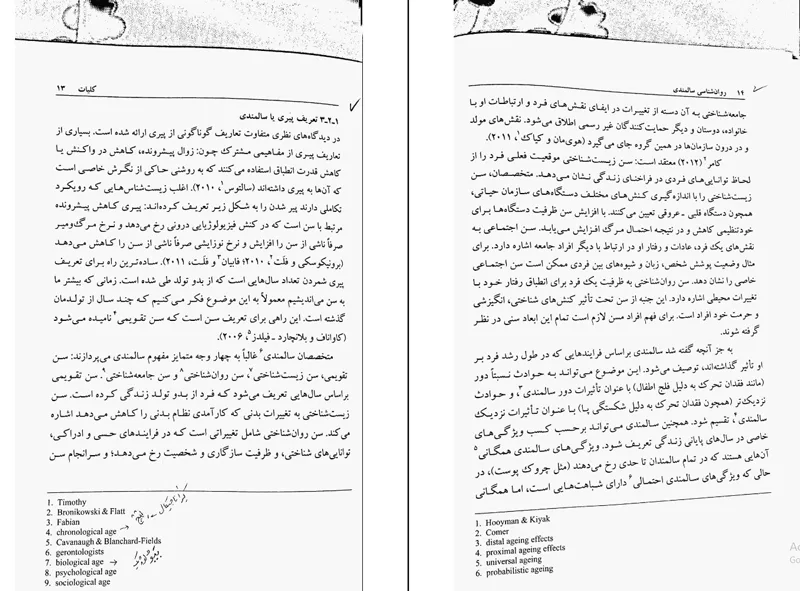 کلیات ۱۳
۱ـ۲ـ۳ تعریف پیری یا سالمندی
در دیدگاه‌های نظری متفاوت تعاریف گوناگونی از پیری ارائه شده است. بسیاری از
تعاریف پیری از مفاهیمی مشترک چون: زوال پیشرونده، کاهش در واکنش یا
کاهش قدرت انطباق استفاده می‌کنند که به روشنی حاکی از نگرش خاصی است
که آن‌ها به پیری داشته‌اند (سالتوس۱، ۲۰۱۰). اغلب زیست‌شناس‌هایی که رویکرد
تکاملی دارند پیر شدن را به شکل زیر تعریف کرده‌اند: پیری کاهش پیشرونده
مرتبط با سن است که در کنش فیزیولوژیایی درونی رخ می‌دهد و نرخ مرگ‌ومیر
صرفاً ناشی از سن را افزایش و نرخ نوزایشی صرفاً ناشی از سن را کاهش می‌دهد
(برونیکوسکی و فلت۲، ۲۰۱۰؛ فابیان۳ و فلت، ۲۰۱۱). ساده‌ترین راه برای تعریف
پیری شمردن تعداد سال‌هایی است که از بدو تولد طی شده است. زمانی که بیشتر ما
به سن می‌اندیشیم معمولاً به این موضوع فکر می‌کنیم که چند سال از تولدمان
گذشته است. این راهی برای تعریف سن است که سن تقویمی۴ نامیده می‌شود
(کاواناف و بلانچارد ـ فیلدز۵، ۲۰۰۶).
متخصصان سالمندی۶ غالباً به چهار وجه متمایز مفهوم سالمندی می‌پردازند: سن
تقویمی، سن زیست‌شناختی۷، سن روان‌شناختی۸ و سن جامعه‌شناختی۹. سن تقویمی
براساس سال‌هایی تعریف می‌شود که فرد از بدو تولد زندگی کرده است. سن
زیست‌شناختی به تغییرات بدنی که کارآمدی نظام بدنی را کاهش می‌دهد اشاره
می‌کند. سن روان‌شناختی شامل تغییراتی است که در فرایندهای حسی و ادراکی،
توانایی‌های شناختی، و ظرفیت سازگاری و شخصیت رخ می‌دهد؛ و سرانجام سن
1. Timothy
2. Bronikowski & Flatt
3. Fabian
4. chronological age
5. Cavanaugh & Blanchard-Fields
6. gerontologists
7. biological age
8. psychological age
9. sociological age
۱۴ روان‌شناسی سالمندی
جامعه‌شناختی به آن دسته از تغییرات در ایفای نقش‌های فرد و ارتباطات او با
خانواده، دوستان و دیگر حمایت‌کنندگان غیر رسمی اطلاق می‌شود. نقش‌های مولد
و در درون سازمان‌ها در همین گروه جای می‌گیرد (هوی‌مان و کیاک۱، ۲۰۱۱).
کامر۲ (۲۰۱۲) معتقد است: سن زیست‌شناختی موقعیت فعلی فرد را از
لحاظ توانایی‌های فردی در فراخنای زندگی نشان می‌دهد. متخصصان، سن
زیست‌شناختی را با اندازه‌گیری کنش‌های مختلف دستگاه‌های سازمان حیاتی،
همچون دستگاه قلبی ـ عروقی تعیین می‌کنند. با افزایش سن ظرفیت دستگاه‌ها برای
خودتنظیمی کاهش و در نتیجه احتمال مرگ افزایش می‌یابد. سن اجتماعی به
نقش‌های یک فرد، عادات و رفتار او در ارتباط با دیگر افراد جامعه اشاره دارد. برای
مثال وضعیت پوشش شخص، زبان و شیوه‌های بین فردی ممکن است سن اجتماعی
خاصی را نشان دهد. سن روان‌شناختی به ظرفیت یک فرد برای انطباق رفتار خود با
تغییرات محیطی اشاره دارد. این جنبه از سن تحت تأثیر کنش‌های شناختی، انگیزشی
و حرمت خود افراد است. برای فهم افراد مسن لازم است تمام این ابعاد سنی در نظر
گرفته شوند.
به جز آنچه گفته شد سالمندی براساس فرایندهایی که در طول رشد فرد بر
او تأثیر گذاشته‌اند، توصیف می‌شود. این موضوع می‌تواند به حوادث نسبتاً دور
(مانند فقدان تحرک به دلیل فلج اطفال) با عنوان تأثیرات دور سالمندی۳، و حوادث
نزدیک‌تر (همچون فقدان تحرک به دلیل شکستگی پا) با عنوان تأثیرات نزدیک
سالمندی۴، تقسیم شود. همچنین سالمندی می‌تواند برحسب کسب ویژگی‌های
خاصی در سال‌های پایانی زندگی تعریف شود. ویژگی‌های سالمندی همگانی۵
آن‌هایی هستند که در تمام سالمندان تا حدی رخ می‌دهند (مثل چروک پوست)، در
حالی که ویژگی‌های سالمندی احتمالی۶ دارای شباهت‌هایی است، اما همگانی
1. Hooyman & Kiyak
2. Comer
3. distal ageing effects
4. proximal ageing effects
5. universal ageing
6. probabilistic ageing